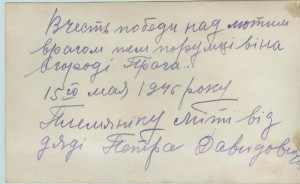 В честь победи над лютим
врагом
в городі Прага..
15го мая 1945 року
Племяніку Міті від
дяді Петра Давидовича